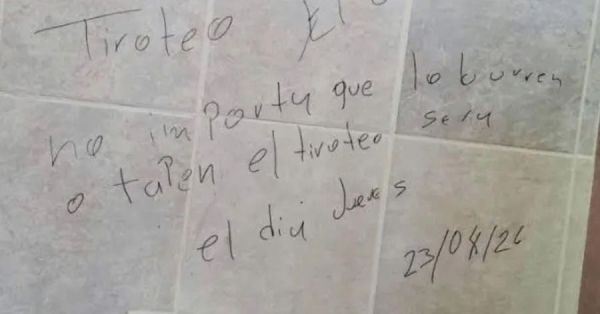 Tiroteo El
no importa que lo burren
o tapen el tiroteo sera
el dia Jueves
23/04/26